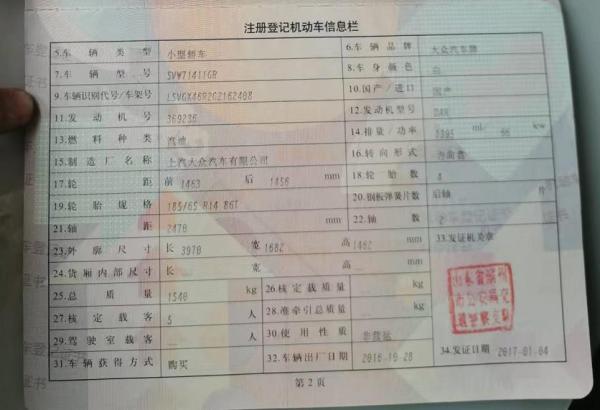 注册登记机动车信息栏
5.车辆类型 小型轿车 6.车辆品牌 大众汽车牌
7.车辆型号 SVW71411GR 8.车身颜色 白
9.车辆识别代号/车架号 10.国产/进口 国产
11.发动机号 369236 12.发动机型号
13.燃料种类 汽油 14.排量/功率 ml kw
15.制造厂名称 上汽大众汽车有限公司 16.转向形式 方向盘
17.轮距 前 1463 后 1456 mm 18.轮胎数 4
19.轮胎规格 185/65 R14 86T 20.钢板弹簧片数 后轴 片
21.轴距 2470 mm 22.轴数 2
23.外廓尺寸 长 3970 宽 1682 高 1462 mm 33.发证机关章
24.货厢内部尺寸 长 宽 高 mm
25.总质量 1540 kg 26.核定载质量 kg
27.核定载客 5 人 28.准牵引总质量 kg
29.驾驶室载客 人 30.使用性质 非营运
31.车辆获得方式 购买 32.车辆出厂日期 2016-10-28 34.发证日期 2017-01-04
第2页